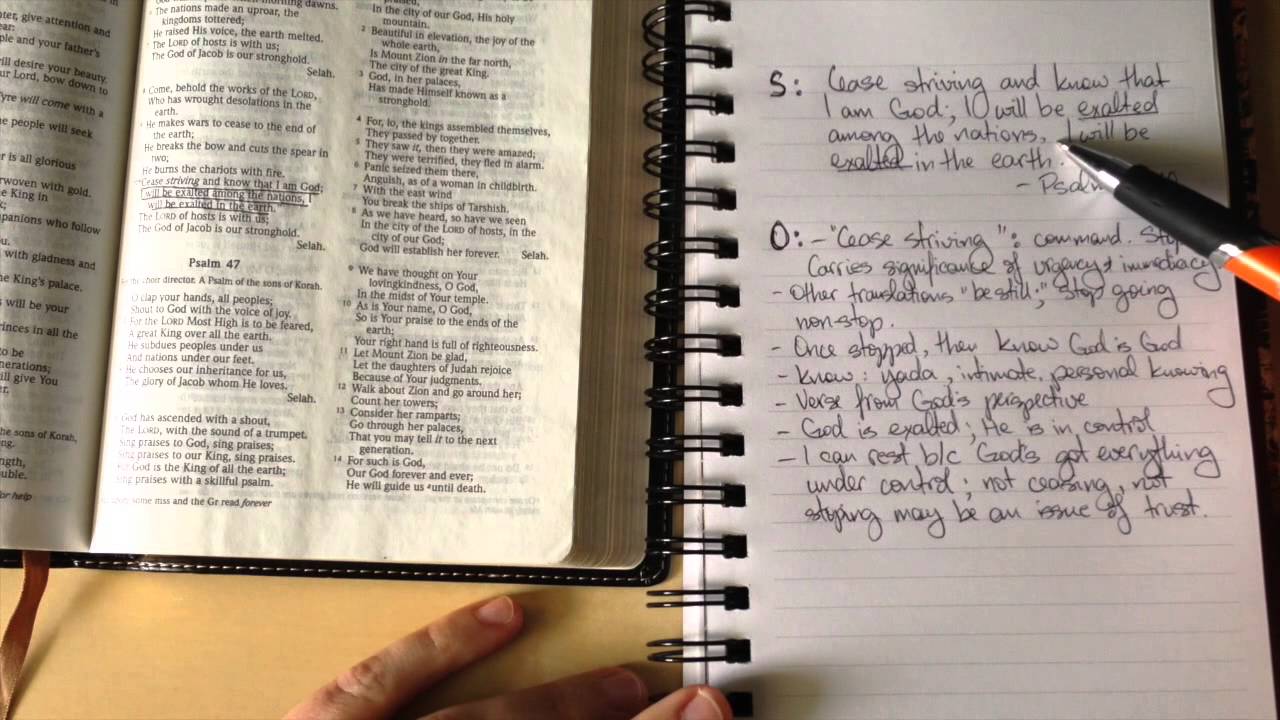 ter, give attention and
ear:
ple and your father's
will desire your beauty.
ur Lord, bow down to
Tyre will come with a
he people will seek
er is all glorious
rwoven with gold.
he King in
k;
panions who follow
u.
with gladness and
he King's palace.
s will be your
rinces in all the
to be
nerations;
ill give You
er.
he sons of Korah,
ng.
ngth,
ouble.
or help
morning dawns.
The nations made an uproar, the
kingdoms tottered;
He raised His voice, the earth melted.
The LORD of hosts is with us;
The God of Jacob is our stronghold.
Selah.
Come, behold the works of the LORD,
Who has wrought desolations in the
earth.
He makes wars to cease to the end of
the earth;
He breaks the bow and cuts the spear in
two;
He burns the chariots with fire.
Cease striving and know that I am God;
I will be exalted among the nations, I
will be exalted in the earth.
The LORD of hosts is with us;
The God of Jacob is our stronghold.
Selah.
Psalm 47
For the choir director. A Psalm of the sons of Korah.
O clap your hands, all peoples;
Shout to God with the voice of joy.
For the LORD Most High is to be feared,
A great King over all the earth.
He subdues peoples under us
And nations under our feet.
He chooses our inheritance for us,
The glory of Jacob whom He loves.
Selah.
God has ascended with a shout,
The LORD, with the sound of a trumpet.
Sing praises to God, sing praises;
Sing praises to our King, sing praises.
For God is the King of all the earth;
Sing praises with a skillful psalm.
some miss and the Gr read forever
praised,
In the city of our God, His holy
mountain.
2 Beautiful in elevation, the joy of the
whole earth,
Is Mount Zion in the far north,
The city of the great King.
3 God, in her palaces,
Has made Himself known as a
stronghold.
4 For, lo, the kings assembled themselves,
They passed by together.
5 They saw it, then they were amazed;
They were terrified, they fled in alarm.
6 Panic seized them there,
Anguish, as of a woman in childbirth.
7 With the east wind
You break the ships of Tarshish.
8 As we have heard, so have we seen
In the city of the LORD of hosts, in the
city of our God;
God will establish her forever. Selah.
9 We have thought on Your
lovingkindness, O God,
In the midst of Your temple.
10 As is Your name, O God,
So is Your praise to the ends of the
earth;
Your right hand is full of righteousness.
11 Let Mount Zion be glad,
Let the daughters of Judah rejoice
Because of Your judgments.
12 Walk about Zion and go around her;
Count her towers;
13 Consider her ramparts;
Go through her palaces,
That you may tell it to the next
generation.
14 For such is God,
Our God forever and ever;
He will guide us until death.
S: Cease striving and know that
I am God; I will be exalted
among the nations, I will be
exalted in the earth.
- Psalm
O: - "Cease striving": command. Stop
Carries significance of urgency & immediacy
- Other translations "be still," stop going
non-stop.
- Once stopped, then know God is God
- Know: yada, intimate, personal knowing
- Verse from God's perspective
- God is exalted; He is in control
- I can rest b/c God's got everything
under control; not ceasing, not
stoping may be an issue of trust.